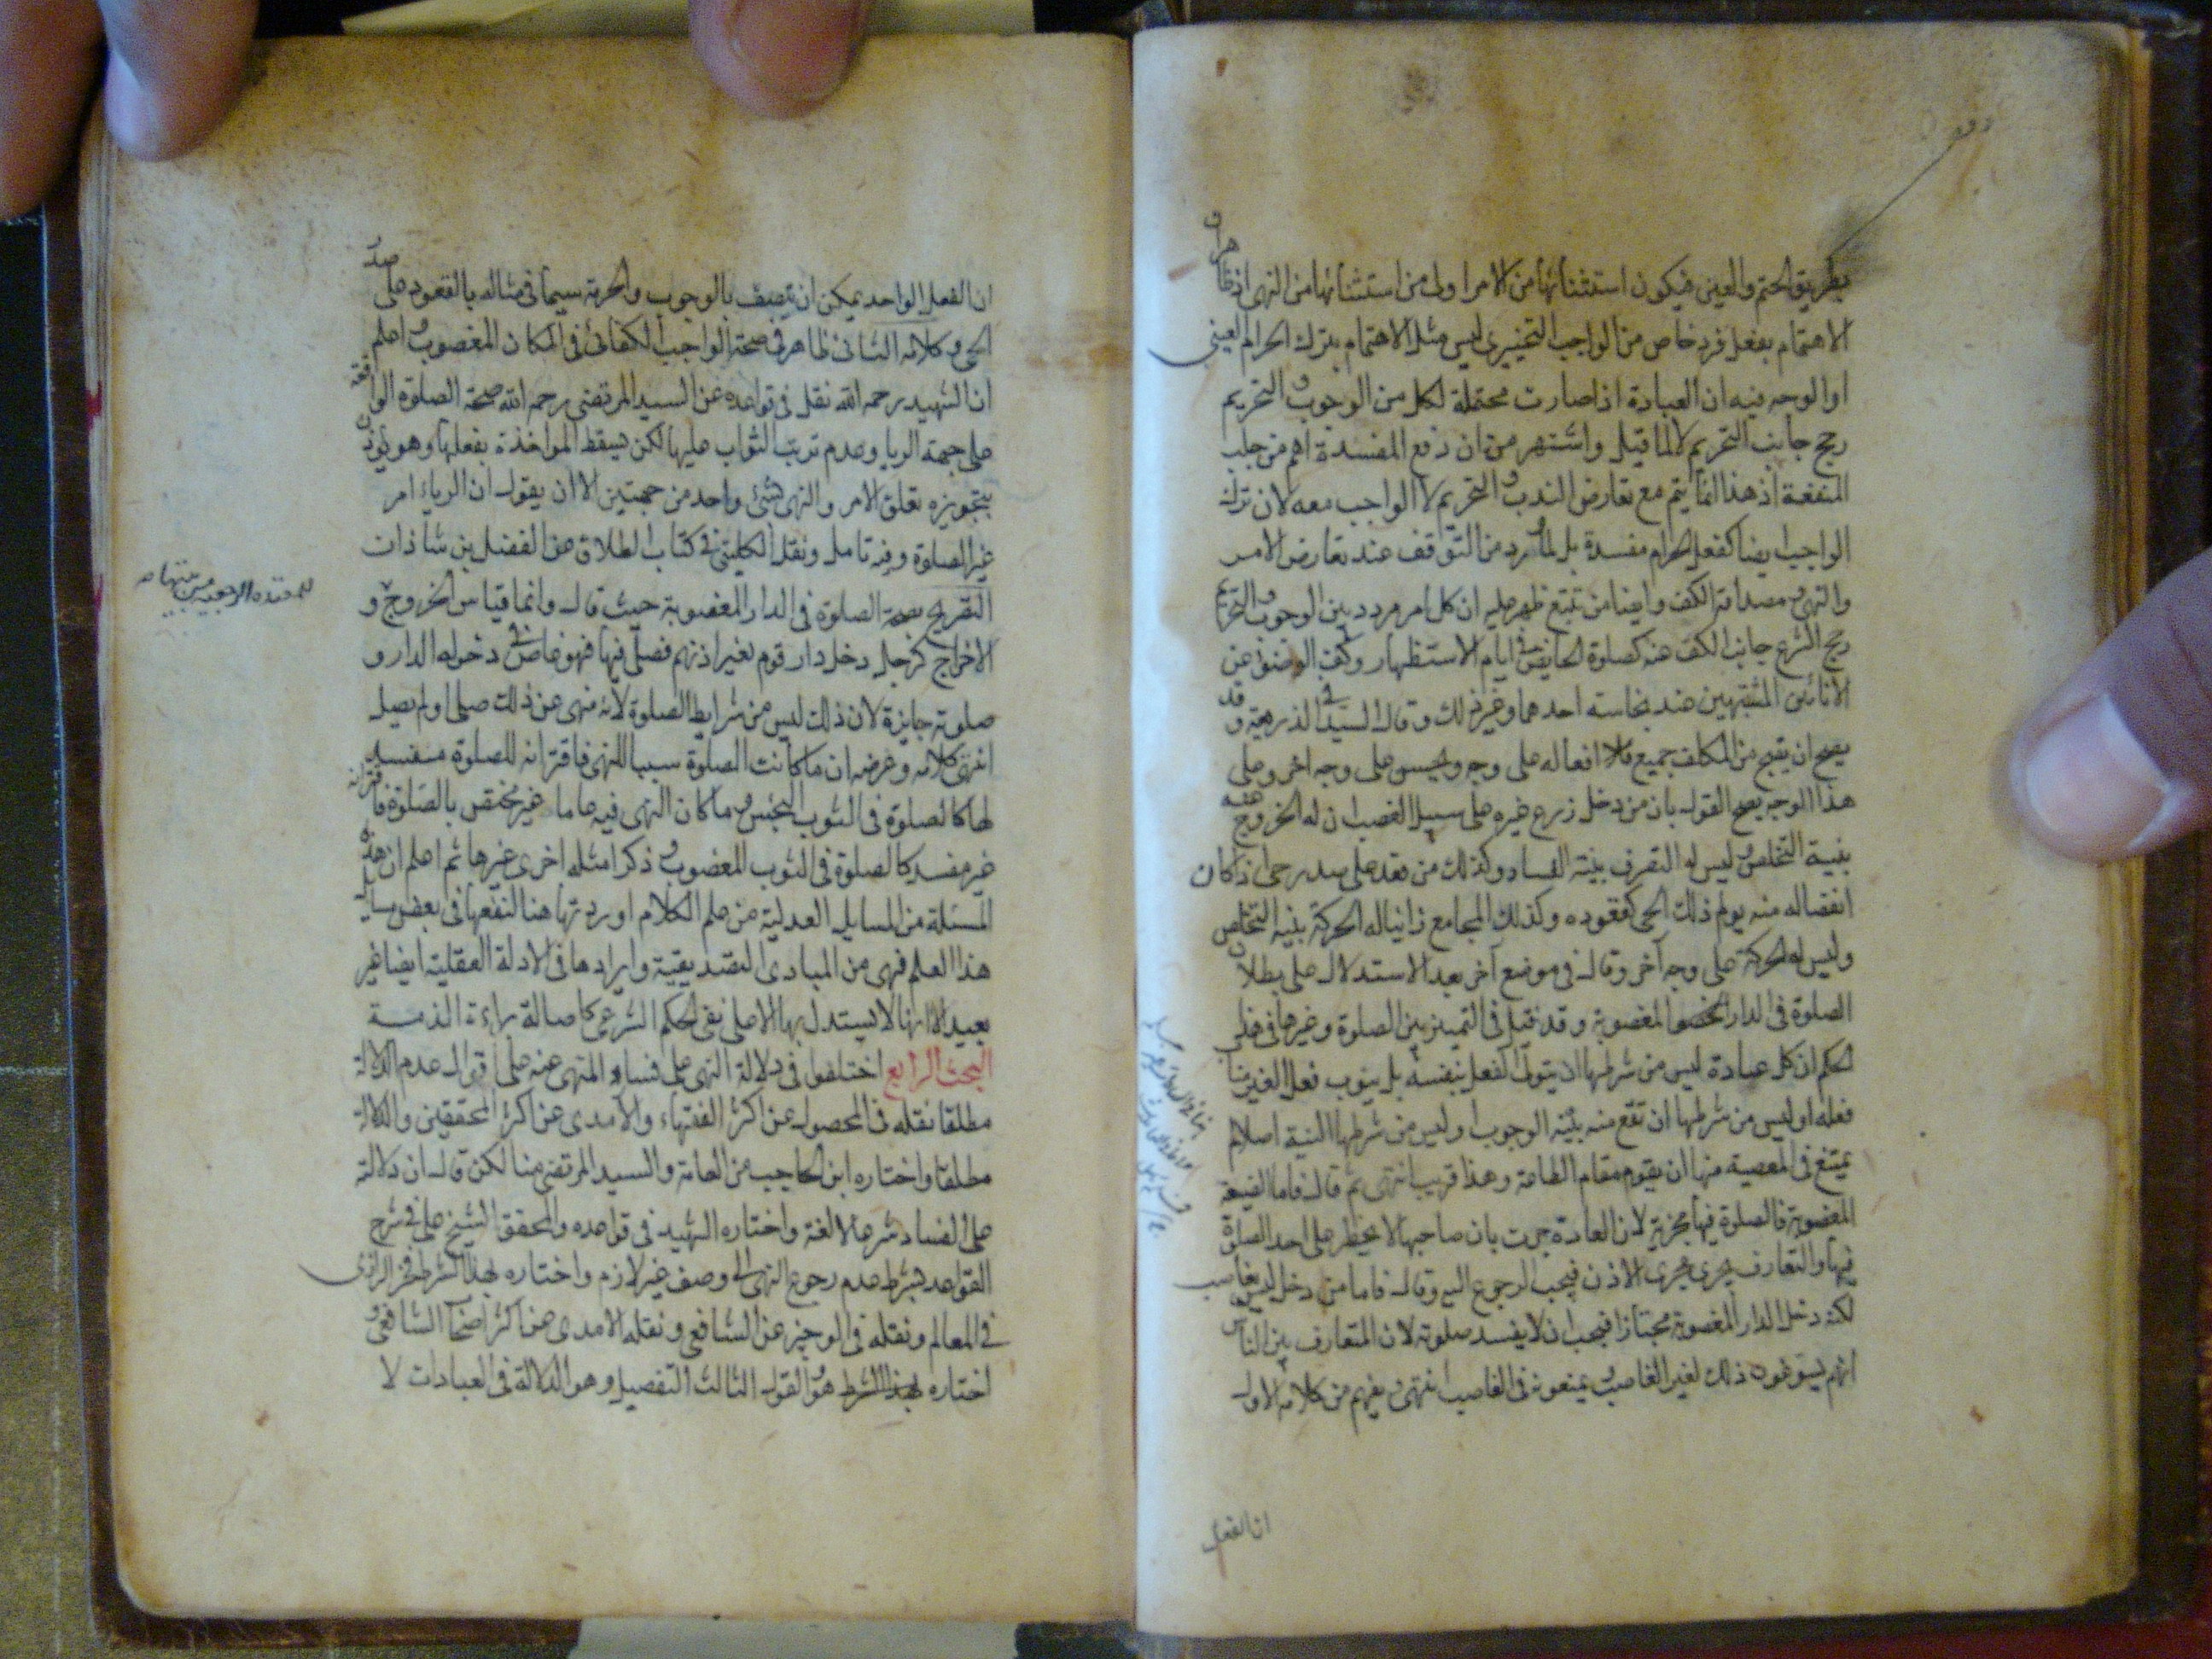 بطريق الحتم والعين فيكون استثنائها من الامر اولى من استثنائها من النهى اذ ظاهر ان
الاهتمام بفعل فرد خاص من الواجب التخييرى ليس مثل الاهتمام بترك الحرام العينى
او الوجه فيه ان العبادة اذا صارت محتملة لكل من الوجوب والتحريم
رجح جانب التحريم لا لما قيل واشتهر من ان دفع المفسدة اهم من جلب
المنفعة اذ هذا انما يتم مع تعارض الندب والتحريم لا الواجب معه لان ترك
الواجب ايضا كفعل الحرام مفسدة بل لما ورد من التوقف عند تعارض الامر
والنهى ومصداقه الكف وايضا من تتبع ظهر عليه ان كل امر مردد بين الوجوب والتحريم
رجح الشرع جانب الكف عنه كصلوة الحايض فى ايام الاستظهار وكف الوضوء عن
الانائين المشتبهين عند نجاسته احدهما وغير ذلك وقال السيد فى الذريعة وقد
يصح ان يقبح من المكلف جميع افعاله على وجه ويحسن على وجه اخر وعلى
هذا الوجه يصح القول بان من دخل زرع غيره على سبيل الغصب ان له الخروج عنه
بنية التخلص وليس له التصرف بنية الفساد وكذلك من قعد على صدر حى اذا كان
انفصاله منه يولم ذلك الحى كقعوده وكذلك المجامع زانيا له الحركة بنية التخلص
وليس له الحركة على وجه آخر وقال فى موضع آخر بعد الاستدلال على بطلان
الصلوة فى الدار المغصوبة وقد قيل فى التمييز بين الصلوة وغيرها فى هذا
الحكم ان كل عبادة ليس من شرطها ان يتولى الفعل بنفسه بل ينوب فعل الغير مناب
فعله او ليس من شرطها ان تقع منه بنية الوجوب او ليس من شرطها النية اصلا لم
يمتنع فى المعصية منها ان يقوم مقام الطاعة وهذا قريب انتهى ثم قال فاما الضيعة
المغصوبة فالصلوة فيها مجزية لان العادة جرت بان صاحبها لا يحظر على احد الصلوة
فيها والتعارف يجرى مجرى الاذن فيجب الرجوع اليه وقال فاما من دخل وليس بغاصب
لكنه دخل الدار المغصوبة مجتازا فيجب ان لا يفسد صلوته لان المتعارف بين الناس
انهم يسوغون ذلك لغير الغاصب ويمنعونه فى الغاصب انتهى ويفهم من كلامه الاول
ان الفعل
ان الفعل الواحد يمكن ان يتصف بالوجوب والحرمة سيما فى مثاله بالقعود على صدر
الحى وكلامه الثانى ظاهر فى صحة الواجب الكفائى فى المكان المغصوب واعلم
ان الشهيد رحمه الله نقل فى قواعده عن السيد المرتضى رحمه الله صحة الصلوة الواقعة
على جهة الريا وعدم ترتب الثواب عليها لكن يسقط المواخذة بفعلها وهو يؤذن
بتجويزه تعلق الامر والنهى بشئ واحد من جهتين الا ان يقول ان الرياء امر
غير الصلوة وفيه تامل ونقل الكلينى فى كتاب الطلاق عن الفضل بن شاذان
التصريح بصحة الصلوة فى الدار المغصوبة حيث قال وانما قياس الخروج و
الاخراج كرجل دخل دار قوم بغير اذنهم فصلى فيها فهو عاص فى دخوله الدار و
صلوته جايزة لان ذلك ليس من شرايط الصلوة لانه منهى عن ذلك صلى او لم يصل
انتهى كلامه وغرضه ان ما كانت الصلوة سببا للنهى فاقترانه للصلوة مفسد
لها كالصلوة فى الثوب النجس وما كان النهى فيه عاما غير مختص بالصلوة فاقترانه
غير مفسد كالصلوة فى الثوب المغصوب وذكر امثلة اخرى غيرها ثم اعلم ان هذه
المسئلة من المسايل العدلية من علم الكلام اوردتها هنا لنفعها فى بعض مسايل
هذا العلم فهى من المبادى التصديقية وايرادها فى الادلة العقلية ايضا غير
بعيد الا انها لا يستدل بها الا على نفى الحكم الشرعى كاصالة براءة الذمة
البحث الرابع اختلفوا فى دلالة النهى على فساد المنهى عنه على اقوال عدم الدلالة
مطلقا نقله فى المحصول عن اكثر الفقهاء والآمدى عن اكثر المحققين والدلالة
مطلقا واختاره ابن الحاجب من العامة والسيد المرتضى منا لكن قال ان دلالته
على الفساد شرعا لا لغة واختاره الشهيد فى قواعده والمحقق الشيخ على فى شرح
القواعد بشرط عدم رجوع النهى الى وصف غير لازم واختاره بهذا الشرط فخر الرازى
فى المعالم ونقله فى الوجيز عن الشافعى ونقله الامدى عن اكثر اصحاب الشافعى و
اختاره بهذا الشرط هو القول الثالث التفصيل وهو الدلالة فى العبادات لا